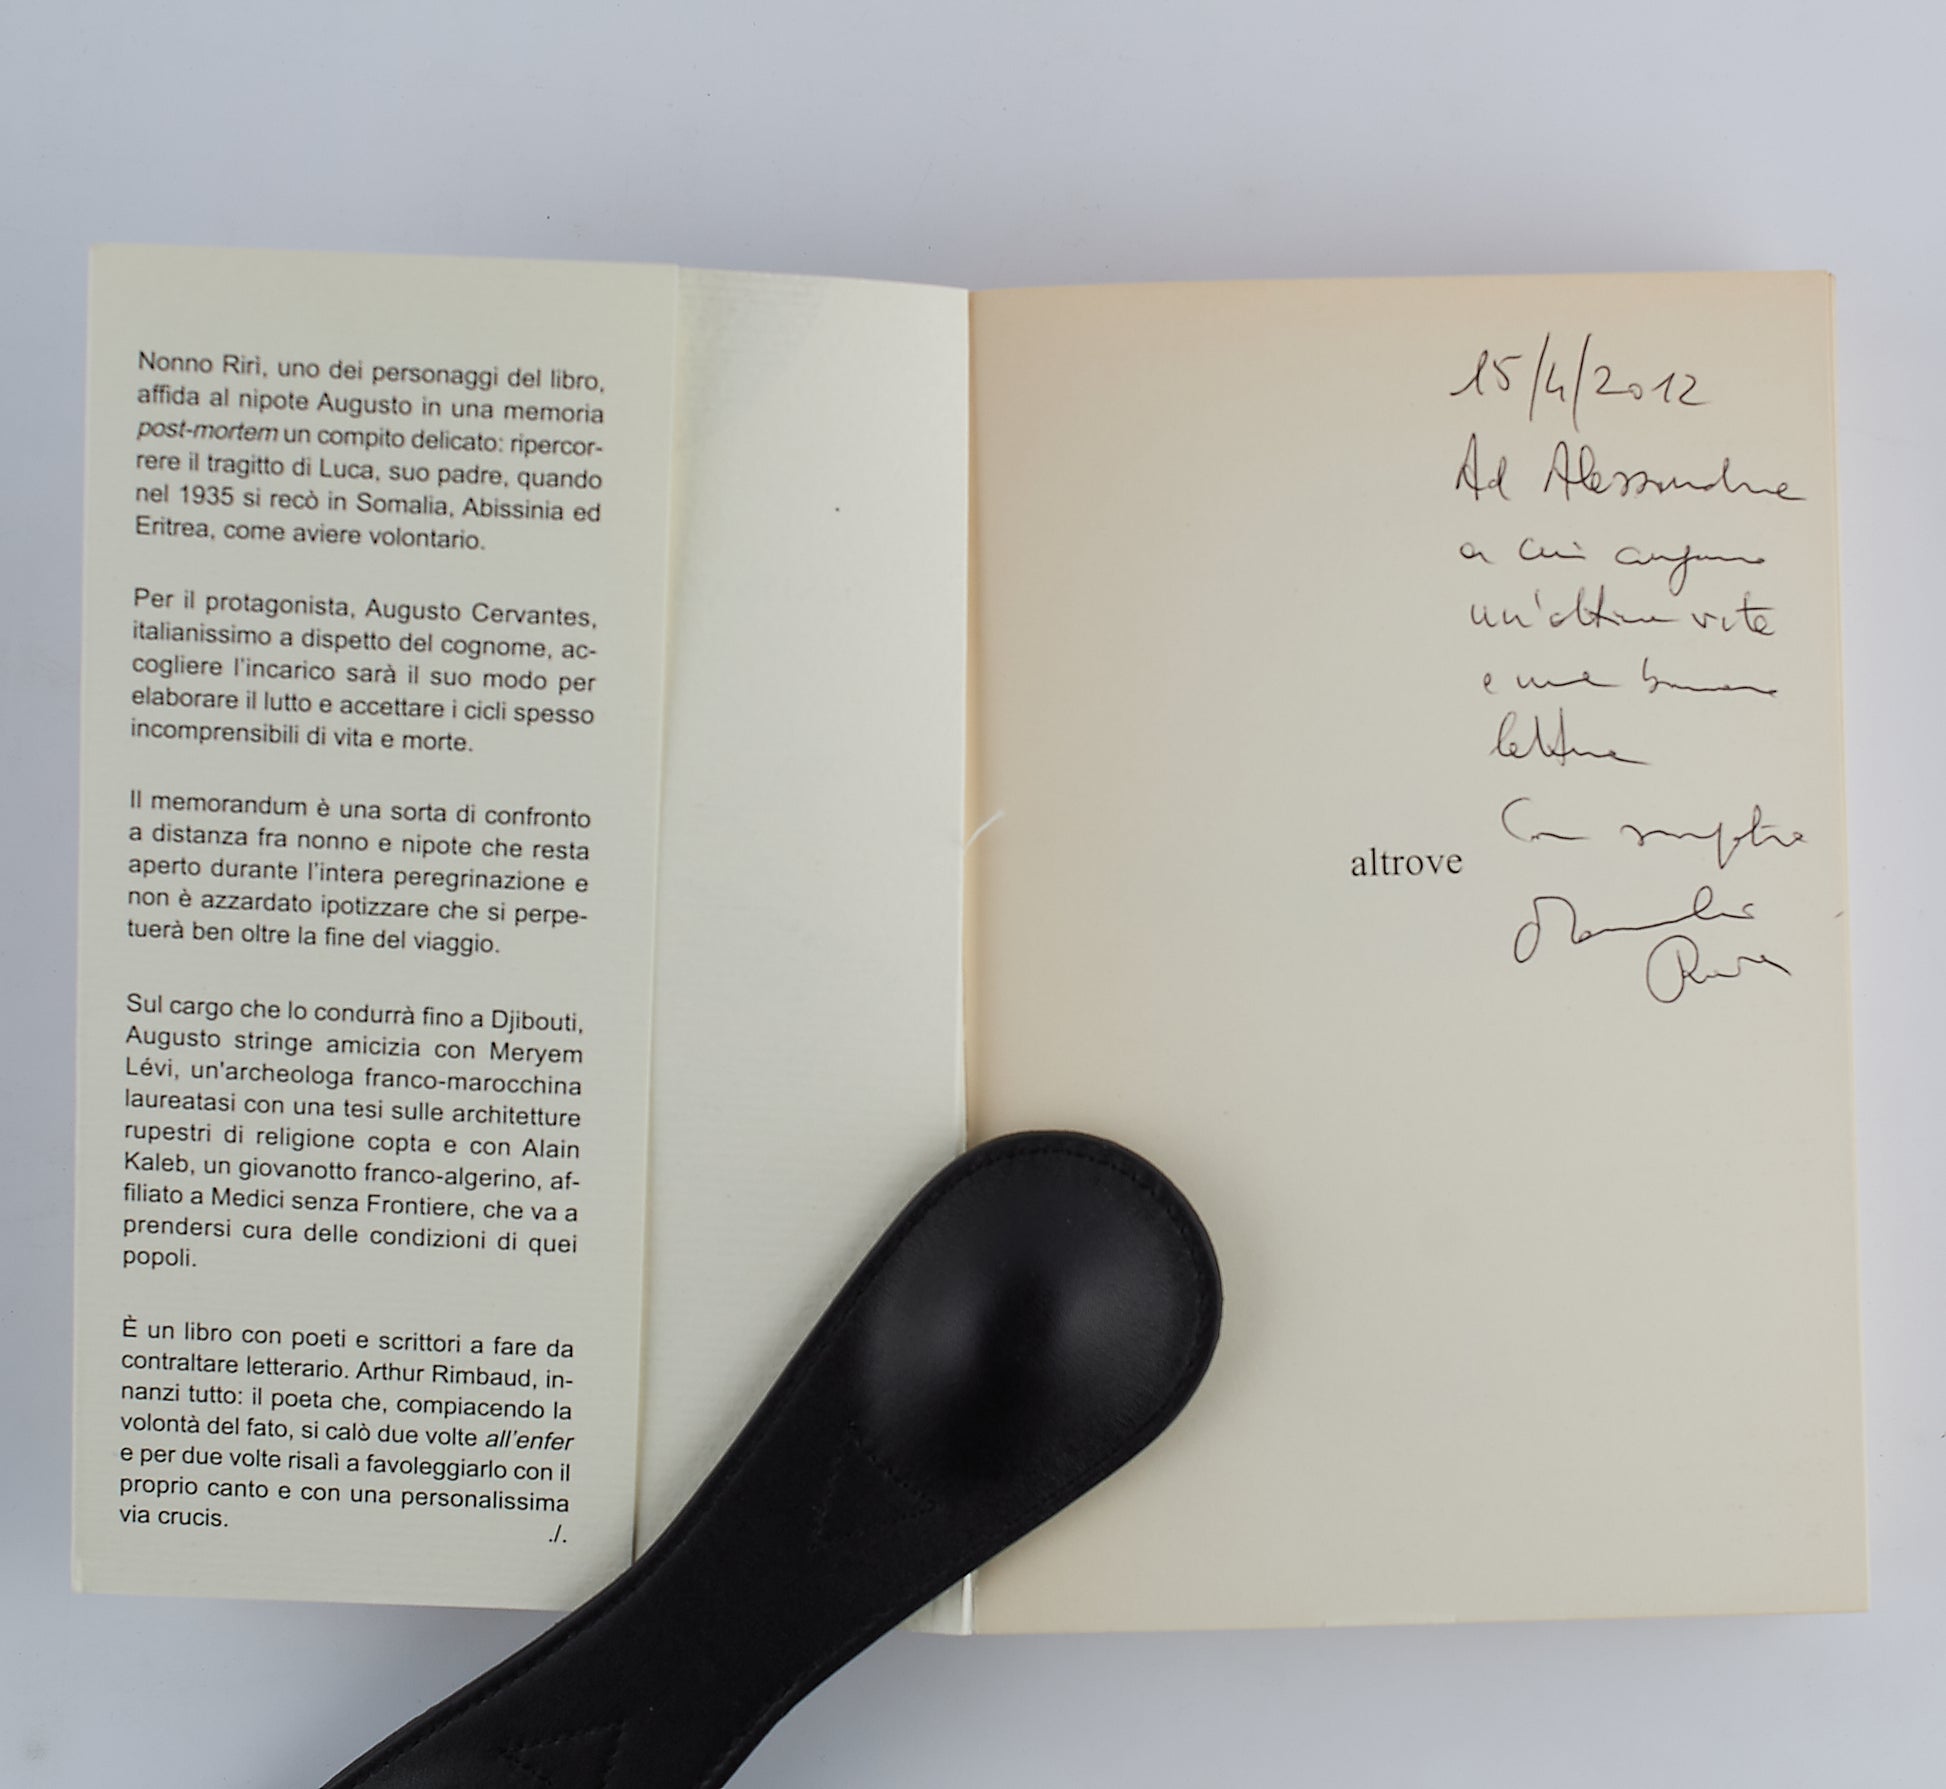 Nonno Rirì, uno dei personaggi del libro,
affida al nipote Augusto in una memoria
post-mortem un compito delicato: ripercor-
rere il tragitto di Luca, suo padre, quando
nel 1935 si recò in Somalia, Abissinia ed
Eritrea, come aviere volontario.
Per il protagonista, Augusto Cervantes,
italianissimo a dispetto del cognome, ac-
cogliere l'incarico sarà il suo modo per
elaborare il lutto e accettare i cicli spesso
incomprensibili di vita e morte.
Il memorandum è una sorta di confronto
a distanza fra nonno e nipote che resta
aperto durante l'intera peregrinazione e
non è azzardato ipotizzare che si perpe-
tuerà ben oltre la fine del viaggio.
Sul cargo che lo condurrà fino a Djibouti,
Augusto stringe amicizia con Meryem
Lévi, un'archeologa franco-marocchina
laureatasi con una tesi sulle architetture
rupestri di religione copta e con Alain
Kaleb, un giovanotto franco-algerino, af-
filiato a Medici senza Frontiere, che va a
prendersi cura delle condizioni di quei
popoli.
È un libro con poeti e scrittori a fare da
contraltare letterario. Arthur Rimbaud, in-
nanzi tutto: il poeta che, compiacendo la
volontà del fato, si calò due volte all'enfer
e per due volte risalì a favoleggiarlo con il
proprio canto e con una personalissima
via crucis.
./.
15/4/2012
Ad Alessandra
a cui auguro
un'ottima vita
e una buona
lettura
Con simpatia
altrove